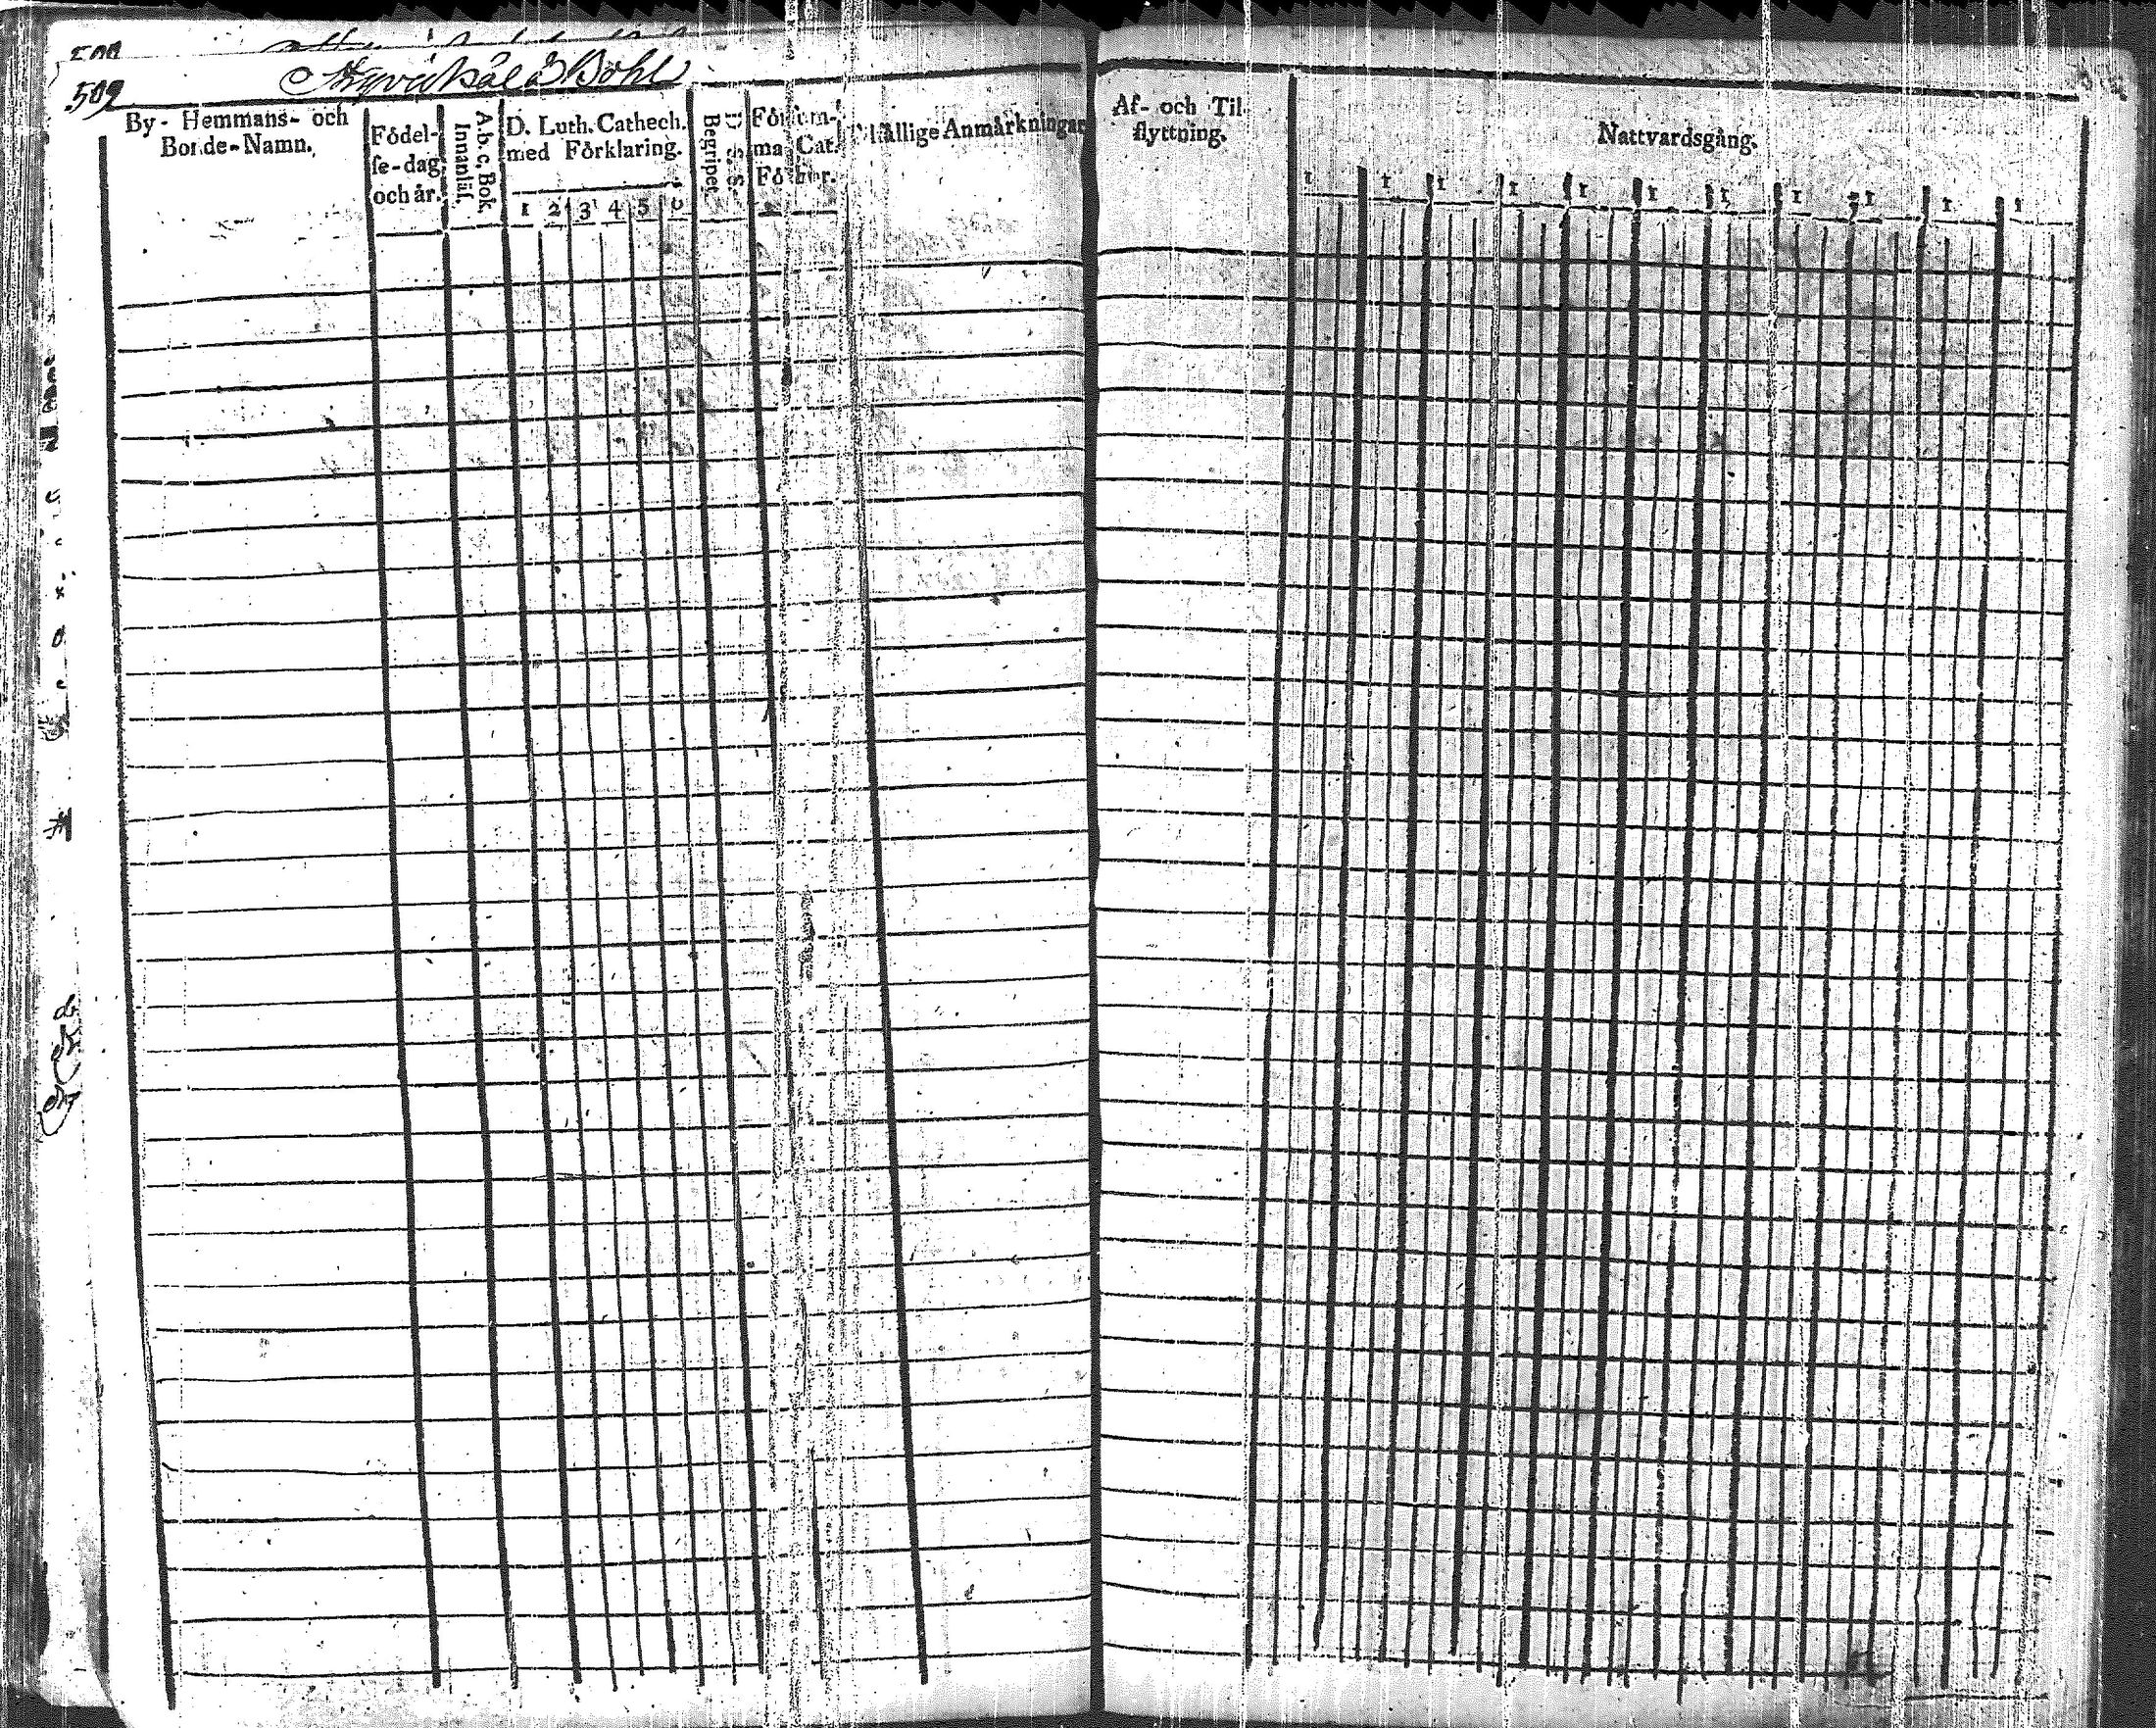 509
Bohl
By- Hemmans- och
Bonde-Namn.
Födel-
se-dag
och år.
A.b.c. Bok.
Innanläs.
D. Luth. Cathech.
med Förklaring.
1 2 3 4 5 6
Begripet.
D. S. S.
Försum-
ma Cat.
Förhör.
Tilfällige Anmärkningar
Af- och Til
flyttning.
Nattvardsgång.
1 1 1 1 1 1 1 1 1 1 1